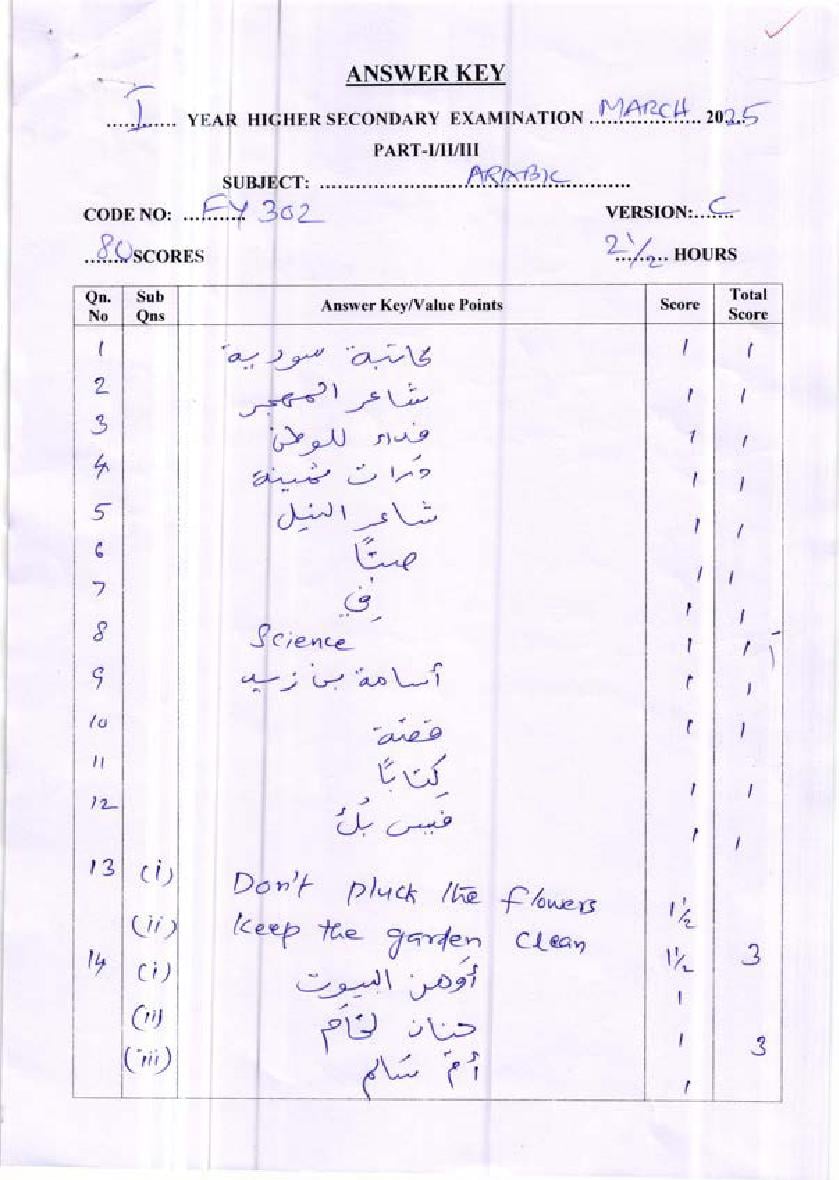 ANSWER KEY
I YEAR HIGHER SECONDARY EXAMINATION MARCH 2025
PART-I/II/III
SUBJECT: ARABIC
CODE NO: FY 302 VERSION: C
80 SCORES 2 1/2 HOURS
Qn. No Sub Qns Answer Key/Value Points Score Total Score
1 كاتبة سورية 1 1
2 شاعر المهجر 1 1
3 فداء للوطن 1 1
4 درات ثمينة 1 1
5 شاعر النيل 1 1
6 1 1
7 فِي 1 1
8 Science 1 1
9 أسامة بن زيد 1 1
10 قصة 1 1
11 كِتَابًا 1 1
12 فيس بُك 1 1
13 (i) Don't pluck the flowers 1½
(ii) Keep the garden clean 1½ 3
14 (i) أوهن البيوت 1
(ii) حنان لحّام 1 3
(iii) أمّ سَالم 1